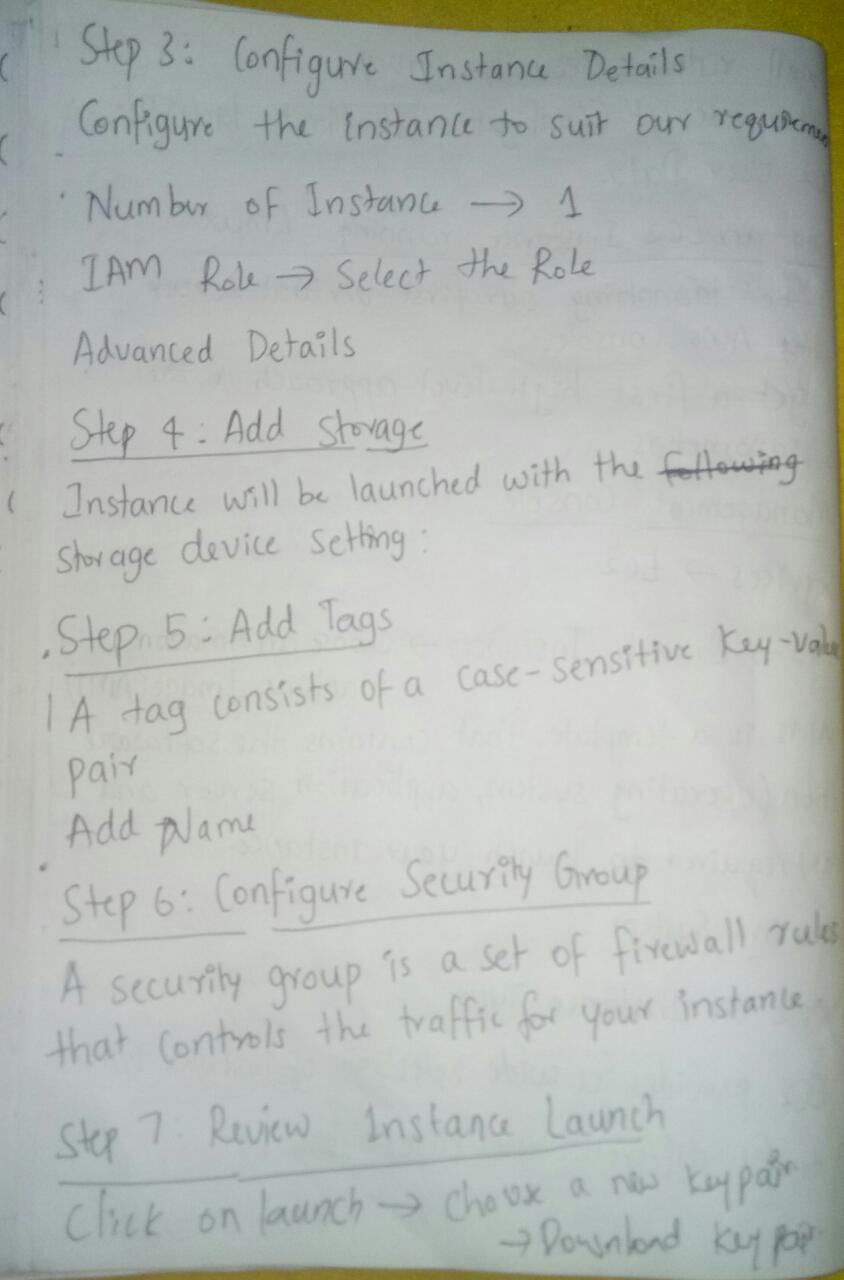 Step 3: Configure Instance Details
Configure the instance to suit our requiremen
Number of Instance → 1
IAM Role → Select the Role
Advanced Details
Step 4: Add Storage
Instance will be launched with the following
storage device setting:
Step 5: Add Tags
A tag consists of a case-sensitive key-value
pair
Add Name
Step 6: Configure Security Group
A security group is a set of firewall rules
that controls the traffic for your instance.
Step 7: Review Instance Launch
Click on launch → choose a new key pair
→ Download key pair